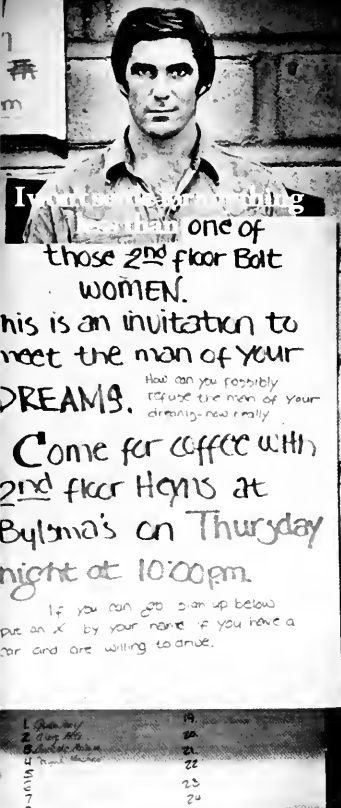 m
I won't settle for anything
less than one of
those 2nd floor Bolt
WOMEN.
his is an invitation to
meet the man of your
DREAMS.
How can you possibly
refuse the man of your
dreams-now really
Come for coffee with
2nd floor Heyns at
Bylsma's on Thursday
night at 10:00pm.
If you can go sign up below
put an X by your name if you have a
car and are willing to drive.
1.
2
3.
4
5
6
7
19.
20.
21.
22
23
24